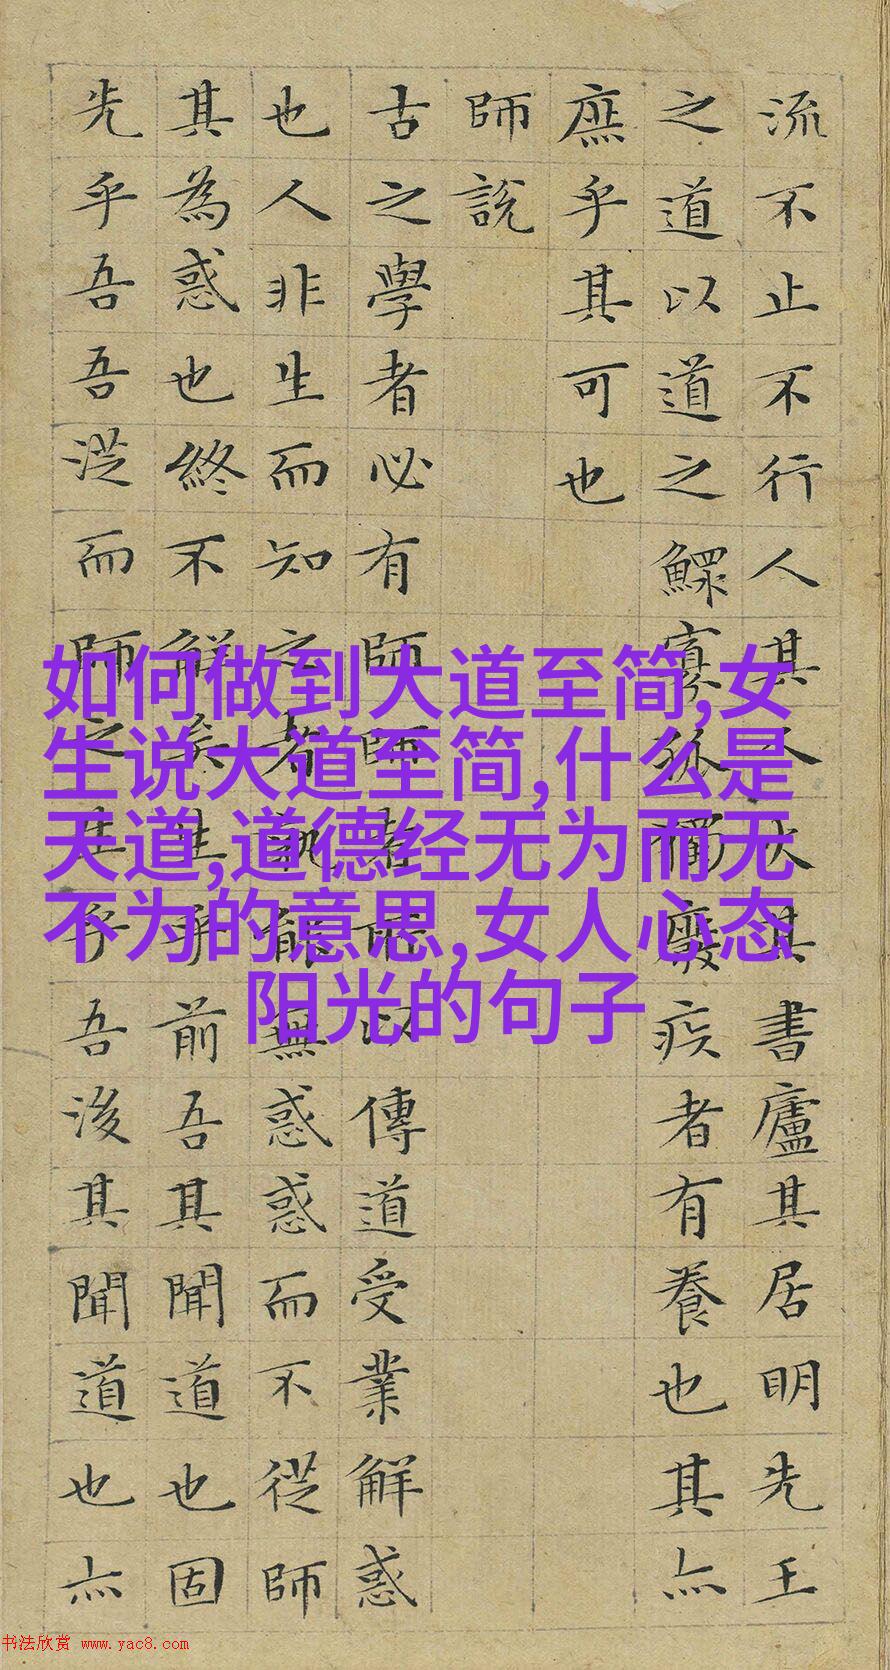 流不止不行人其人火其書廬其居明先王
之道以道之鰥寡孤獨廢疾者有養也其亦
庶乎其可也
師說
古之學者必有師師者所以傳道受業解惑
也人非生而知之者孰能無惑惑而不從師
其為惑也終不解矣生乎前吾其聞道也固
先乎吾吾從而師之生乎吾後其聞道也亦
如何做到大道至简,女
生说大道至简,什么是
天道,道德经无为而无
不为的意思,女人心态
阳光的句子
书法欣赏 www.yac8.com